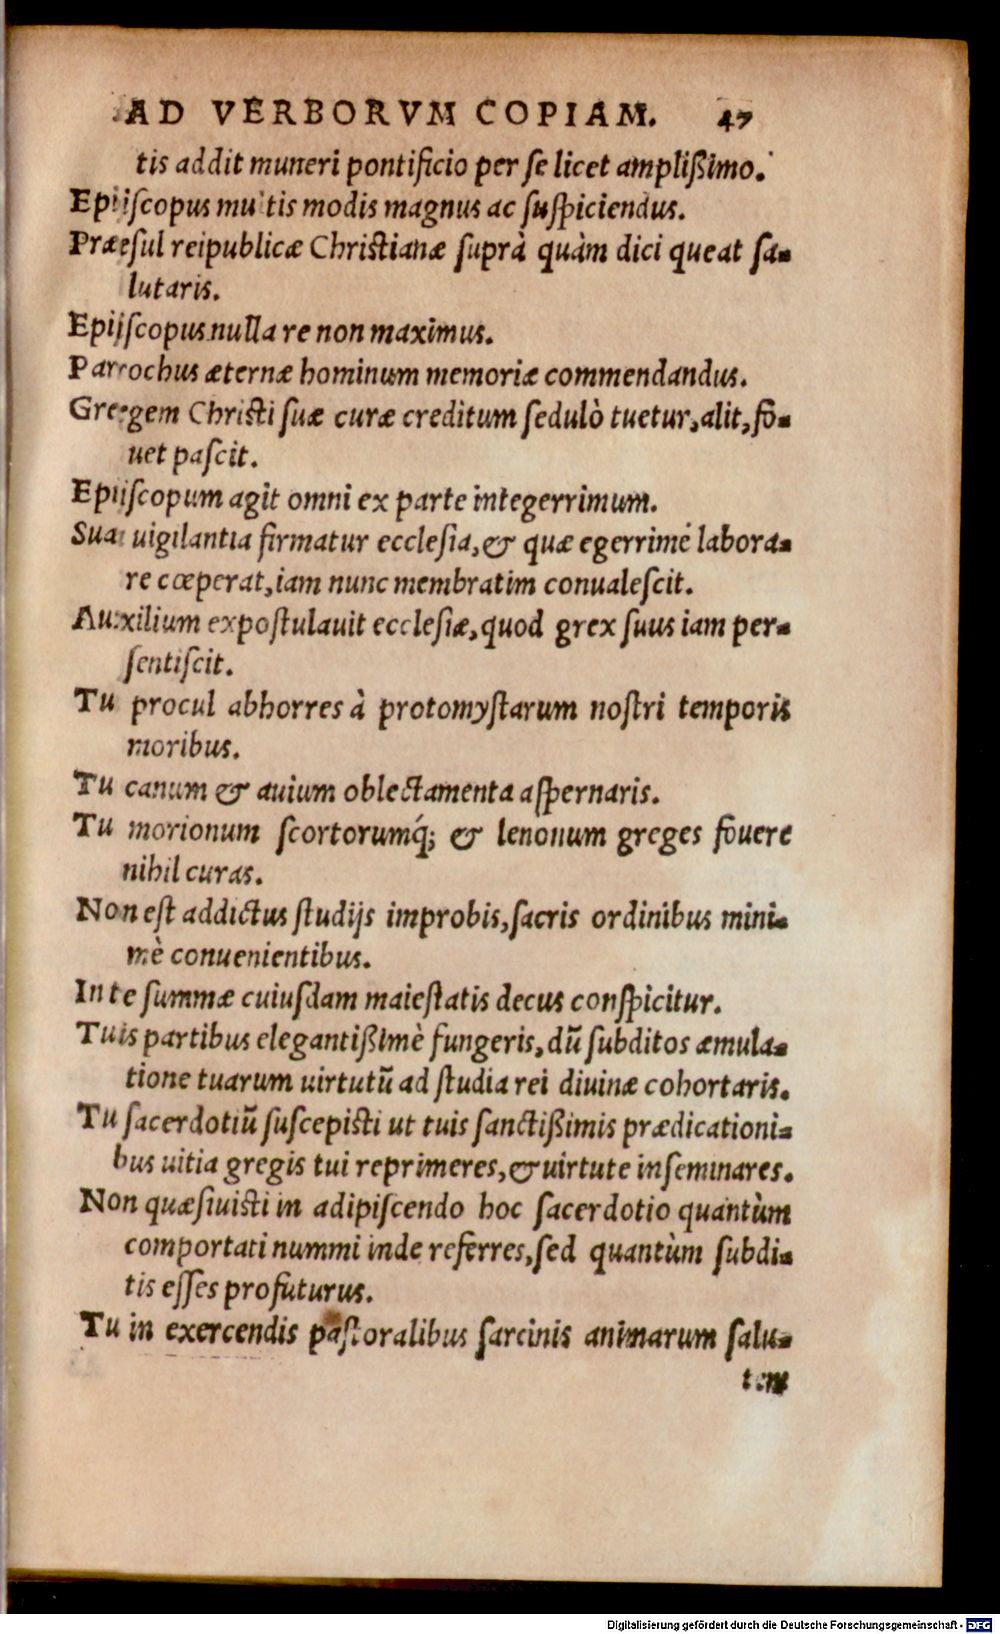 AD VERBORVM COPIAM. 47
tis addit muneri pontificio per se licet amplißimo.
Episcopus multis modis magnus ac suspiciendus.
Præsul reipublicæ Christianæ suprà quàm dici queat sa-
lutaris.
Episcopus nulla re non maximus.
Parochus æternæ hominum memoriæ commendandus.
Gregem Christi suæ curæ creditum sedulò tuetur, alit, fo-
uet pascit.
Episcopum agit omni ex parte integerrimum.
Sua uigilantia firmatur ecclesia, & quæ egerrimè labora-
re cœperat, iam nunc membratim conualescit.
Auxilium expostulauit ecclesiæ, quod grex suus iam per-
sentiscit.
Tu procul abhorres à protomystarum nostri temporis
moribus.
Tu canum & auium oblectamenta aspernaris.
Tu morionum scortorumq́; & lenonum greges fouere
nihil curas.
Non est addictus studijs improbis, sacris ordinibus mini-
mè conuenientibus.
In te summæ cuiusdam maiestatis decus conspicitur.
Tuis partibus elegantißimè fungeris, dũ subditos æmula-
tione tuarum uirtutũ ad studia rei diuinæ cohortaris.
Tu sacerdotiũ suscepisti ut tuis sanctißimis prædicationi-
bus uitia gregis tui reprimeres, & uirtute inseminares.
Non quæsiuisti in adipiscendo hoc sacerdotio quantùm
comportati nummi inde referres, sed quantùm subdi-
tis esses profuturus.
Tu in exercendis pastoralibus sarcinis animarum salu-
tem
Digitalisierung gefördert durch die Deutsche Forschungsgemeinschaft - DFG